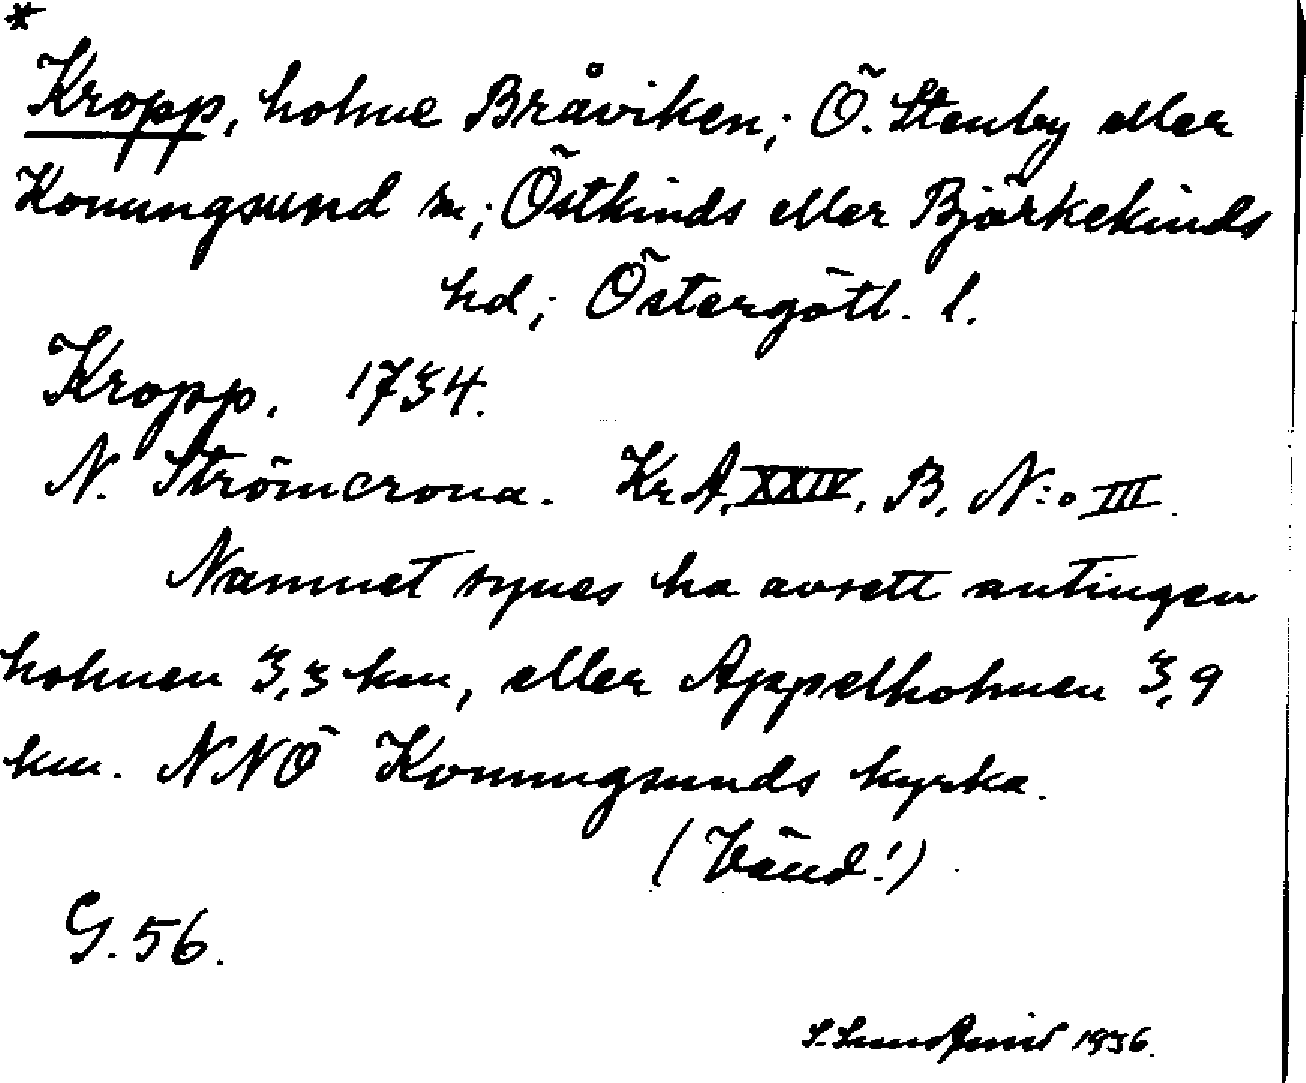 *
Kropp, holme Bråviken; Ö. Stenby eller
Konungsund sn; Östkinds eller Björkekinds
hd; Östergötl. l.
Kropp. 1734.
N. Strömcrona. Kr A. XXIV, B, N:o III.
Namnet synes ha avsett antingen
holmen 3,3 km, eller Appelholmen 3,9
km. NNÖ Konungsunds kyrka.
(Vänd!)
G. 56.
S. Lundqvist 1936.